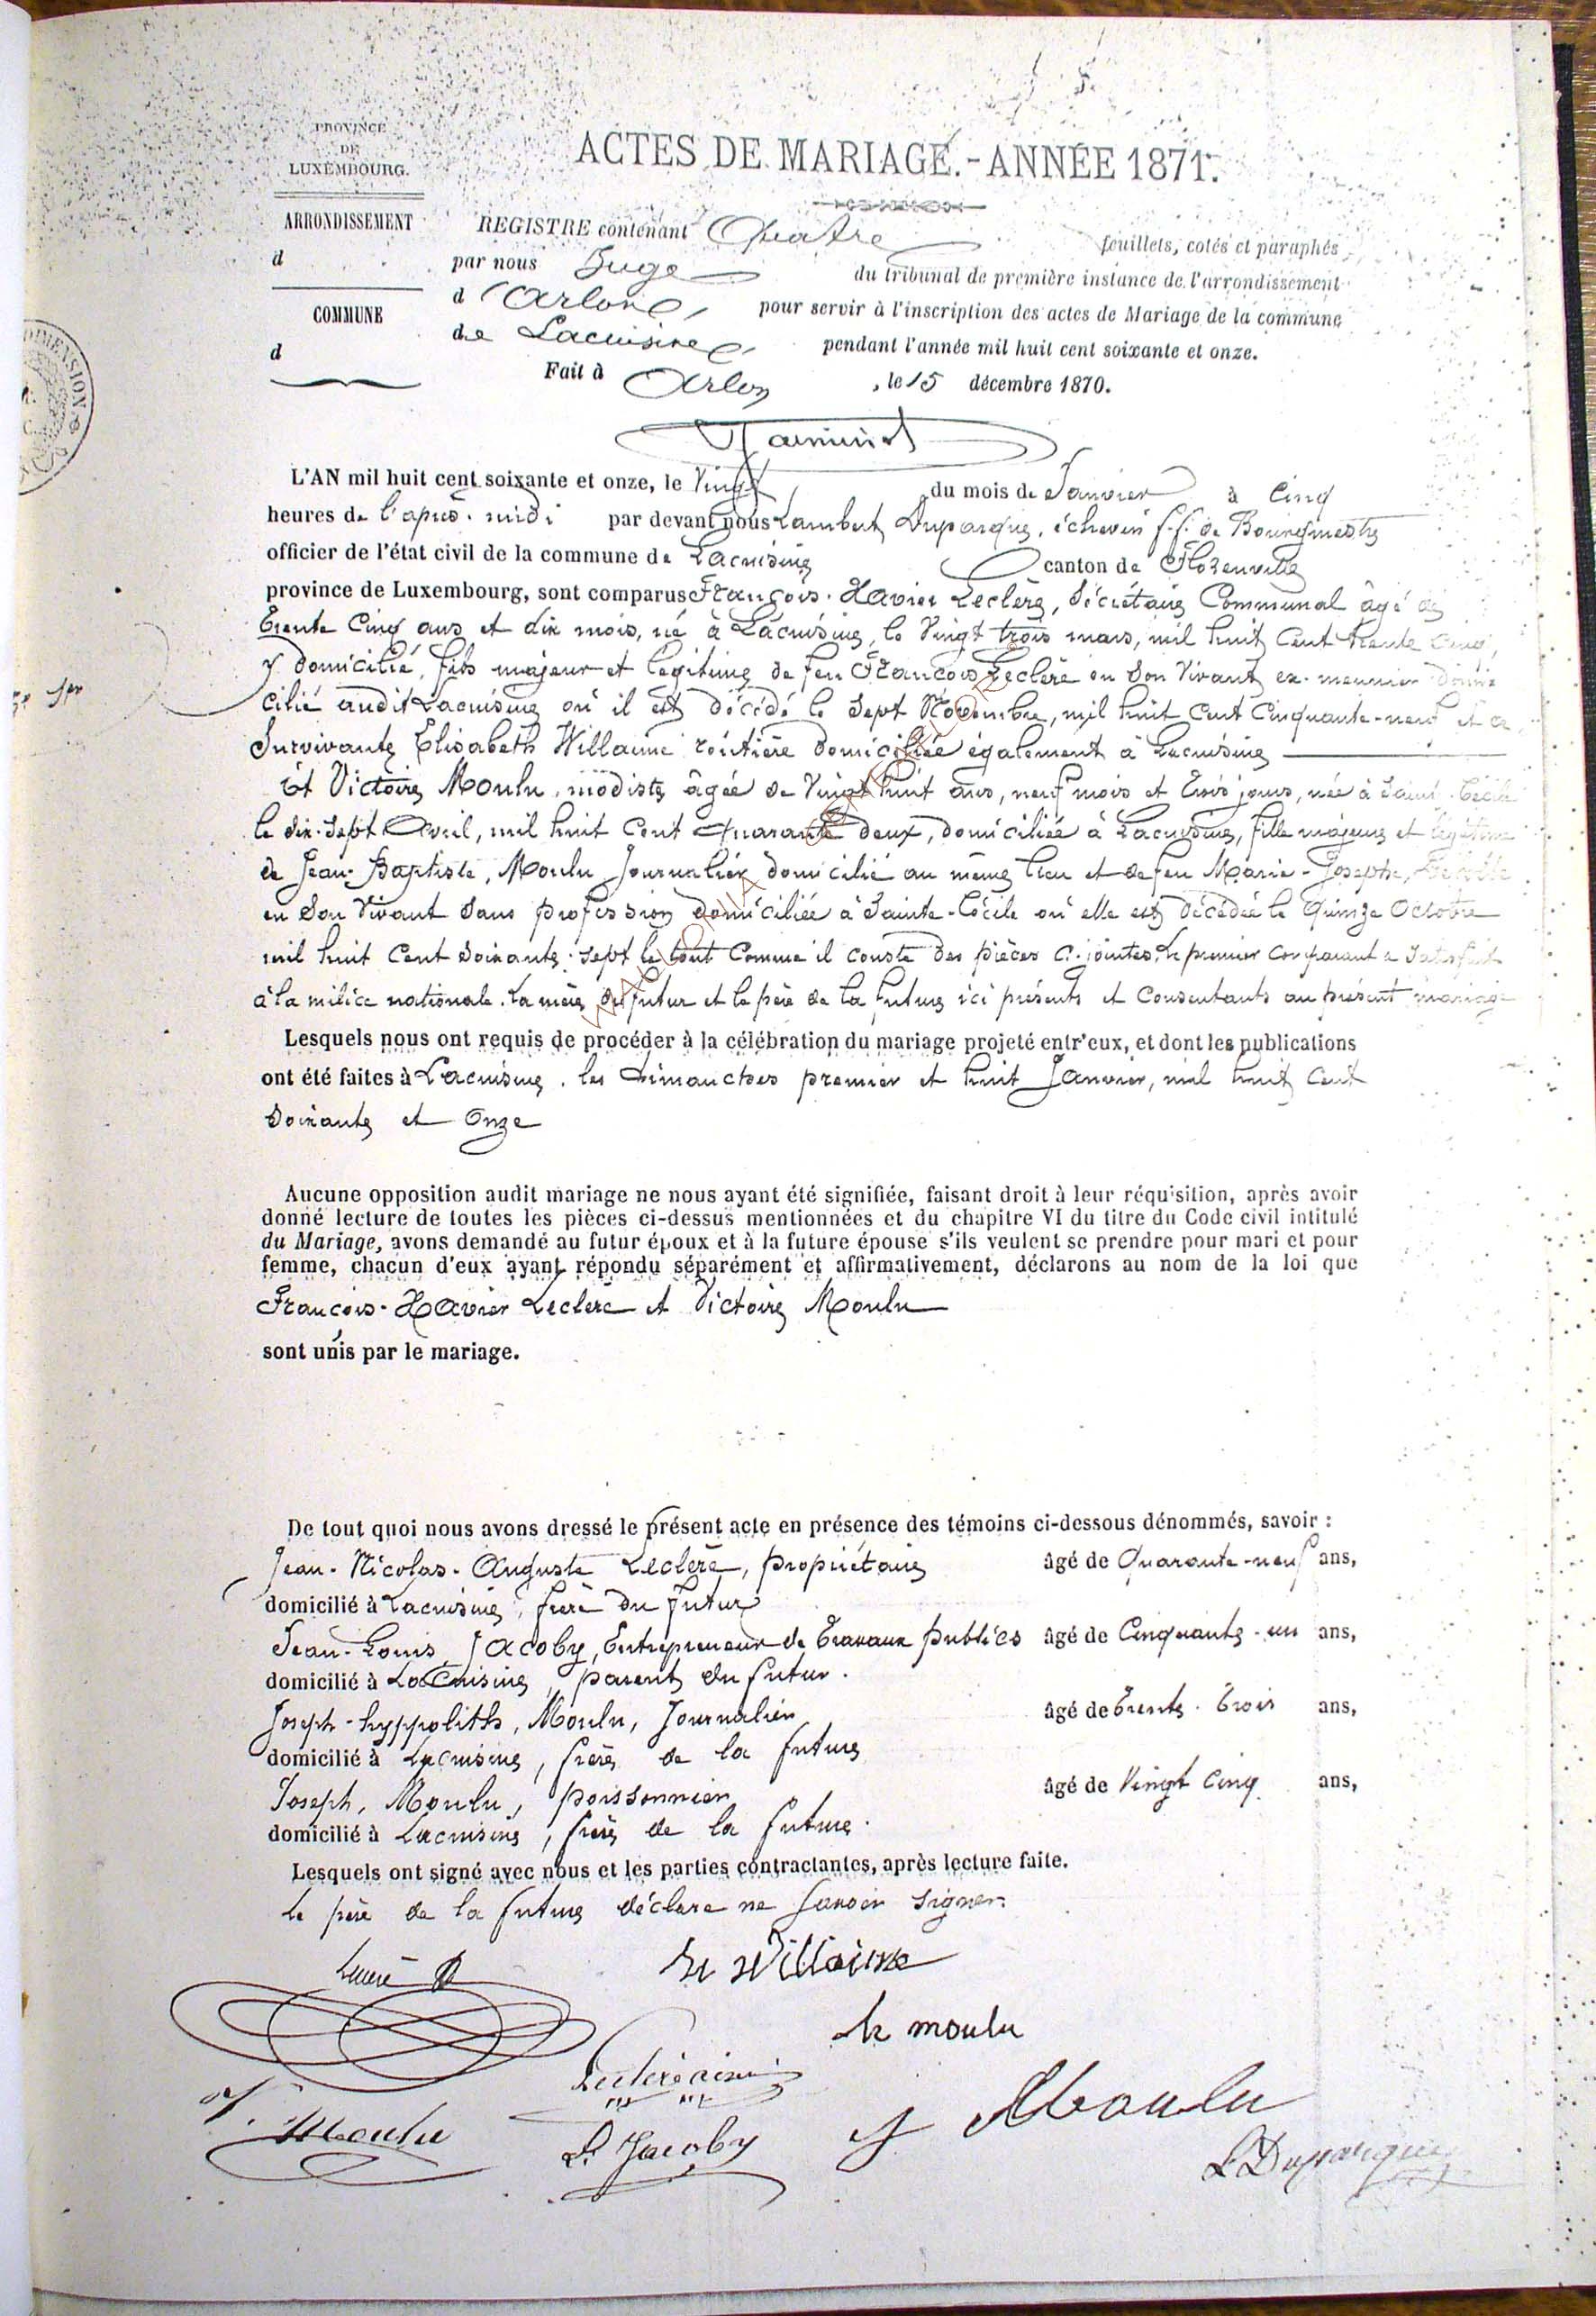 PROVINCE
DE
LUXEMBOURG.
ACTES DE MARIAGE.-ANNÉE 1871.
ARRONDISSEMENT
d
COMMUNE
d
REGISTRE contenant Quatre feuillets, cotés et paraphés
par nous Juge du tribunal de première instance de l'arrondissement
d'Arlon, pour servir à l'inscription des actes de Mariage de la commune
de Lacuisine, pendant l'année mil huit cent soixante et onze.
Fait à Arlon, le 15 décembre 1870.
L'AN mil huit cent soixante et onze, le Vingt, du mois de Janvier à Cinq
heures de l'après-midi par devant nous Lambert Duparque, échevin f.f. de Bourgmestre
officier de l'état civil de la commune de Lacuisine canton de Florenville
province de Luxembourg, sont comparus François-Xavier Leclère, Sécrétaire Communal âgé de
Trente Cinq ans et dix mois, né à Lacuisine, le Vingt trois mars, mil huit Cent trente Cinq,
y domicilié, fils majeur et legitime de feu François Leclère en Son Vivant ex-meunier domi
cilié audit Lacuisine où il est décédé le Sept Novembre, mil huit Cent Cinquante-neuf et de
Survivante Elisabeth Willaume rentière domiciliée également à Lacuisine
Et Victoire Moulu, modiste âgée de Vingt huit ans, neuf mois et trois jours, née à Sainte-Cécile
le dix-Sept Avril, mil huit Cent Quarante deux, domiciliée à Lacuisine, fille majeure et légitime
de Jean-Baptiste, Moulu Journalier domicilié au même lieu et de feu Marie-Josephe,
en Son Vivant Sans profession domiciliée à Sainte-Cécile où elle est décédée le Quinze Octobre
mil huit Cent Soixante-Sept le tout Comme il conste des pièces ci-jointes, le premier Comparant a Satisfait
à la milice nationale. La mère du futur et le père de la future ici présents et Consentants au présent mariage
Lesquels nous ont requis de procéder à la célébration du mariage projeté entr'eux, et dont les publications
ont été faites à Lacuisine, les dimanches premier et huit Janvier, mil huit Cent
Soixante et Onze
Aucune opposition audit mariage ne nous ayant été signifiée, faisant droit à leur réquisition, après avoir
donné lecture de toutes les pièces ci-dessus mentionnées et du chapitre VI du titre du Code civil intitulé
du Mariage, avons demandé au futur époux et à la future épouse s'ils veulent se prendre pour mari et pour
femme, chacun d'eux ayant répondu séparément et affirmativement, déclarons au nom de la loi que
François-Xavier Leclère et Victoire Moulu
sont unis par le mariage.
De tout quoi nous avons dressé le présent acte en présence des témoins ci-dessous dénommés, savoir :
Jean-Nicolas-Auguste Leclère, propriétaire âgé de Quarante-neuf ans,
domicilié à Lacuisine, frère du futur
Jean-Louis Jacoby, Entrepreneur de Travaux publics âgé de Cinquante-un ans,
domicilié à LaCuisine, parent du futur.
Joseph-hyppolith, Moulu, Journalier âgé de Trente-trois ans,
domicilié à Lacuisine, frère de la future
Joseph, Moulu, poissonnier âgé de Vingt Cinq ans,
domicilié à Lacuisine, frère de la future.
Lesquels ont signé avec nous et les parties contractantes, après lecture faite.
Le père de la future déclare ne Savoir Signer.
Willaime
moulu
Leclère ainé
Moulu
L. Jacoby
J Moulu
L Duparque